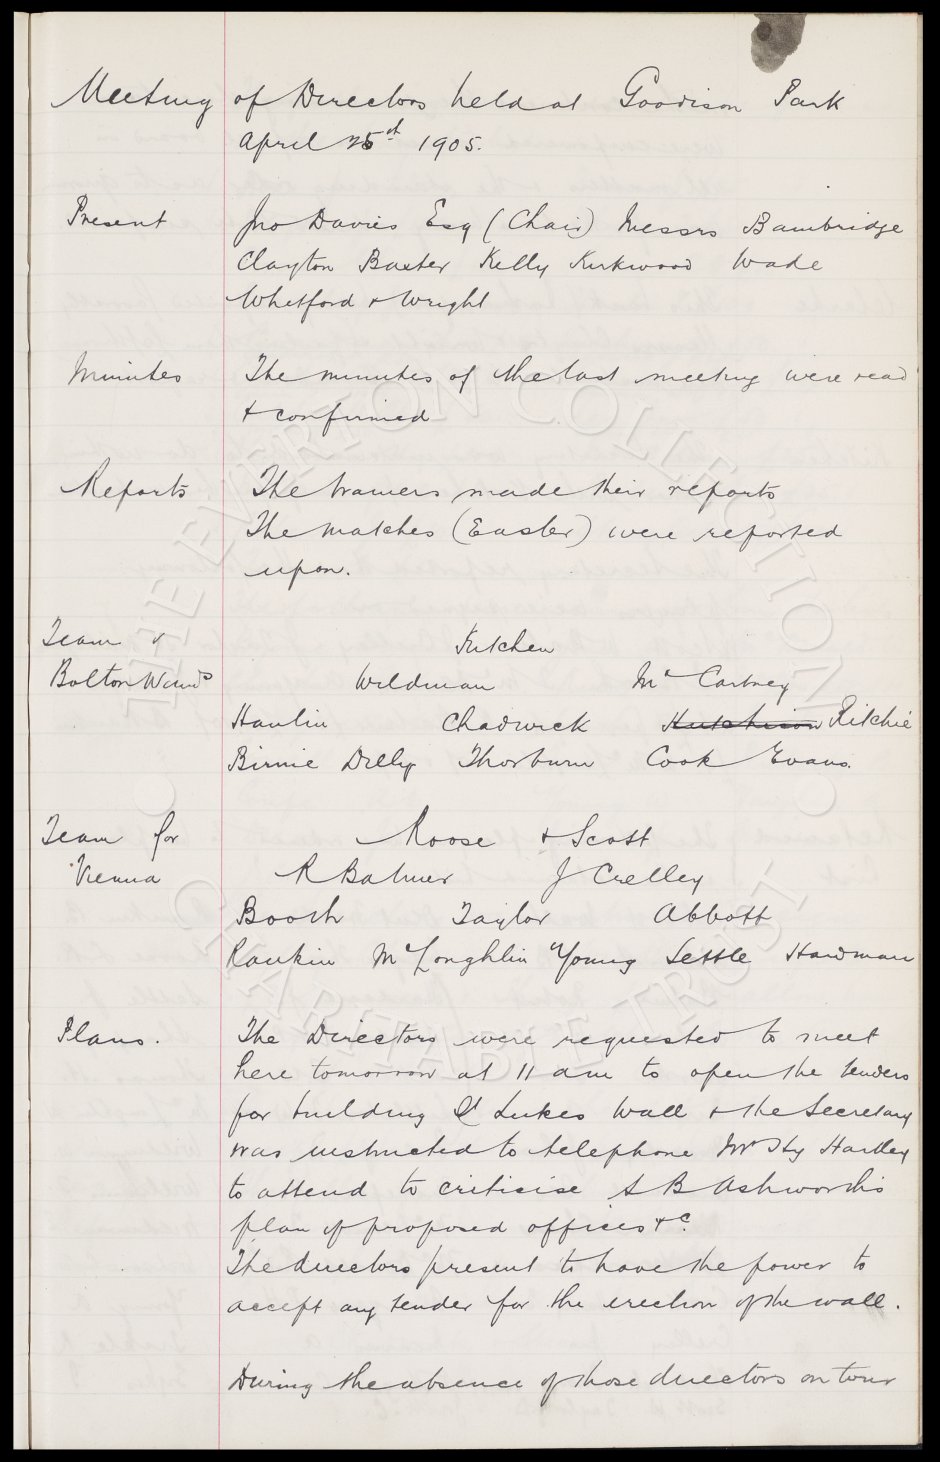 Meeting of Directors held at Goodison Park
April 25th 1905.
Present Jno Davies Esq (Chair) Messrs Bainbridge
Clayton Baxter Kelly Kirkwood Wade
Whitford & Wright
Minutes The minutes of the last meeting were read
& confirmed
Reports The trainers made their reports
The matches (Easter) were reported
upon.
Team v Kitchen
Bolton Wands Wildman McCartney
Hanlin Chadwick Hutchison Ritchie
Birnie Dilly Thorburn Cook Evans.
Team for Roose & Scott
Vienna R Balmer J Crelley
Booth Taylor Abbott
Rankin McLoughlin Young Settle Hardman
Plans. The Directors were requested to meet
here tomorrow at 11 am to open the tenders
for building St Lukes Wall & the Secretary
was instructed to telephone Mr Hy Hartley
to attend to criticise S B Ashworths
plan of proposed offices &c.
The directors present to have the power to
accept any tender for the erection of the wall.
During the absence of those directors on tour
THE EVERTON COLLECTION
CHARITABLE TRUST